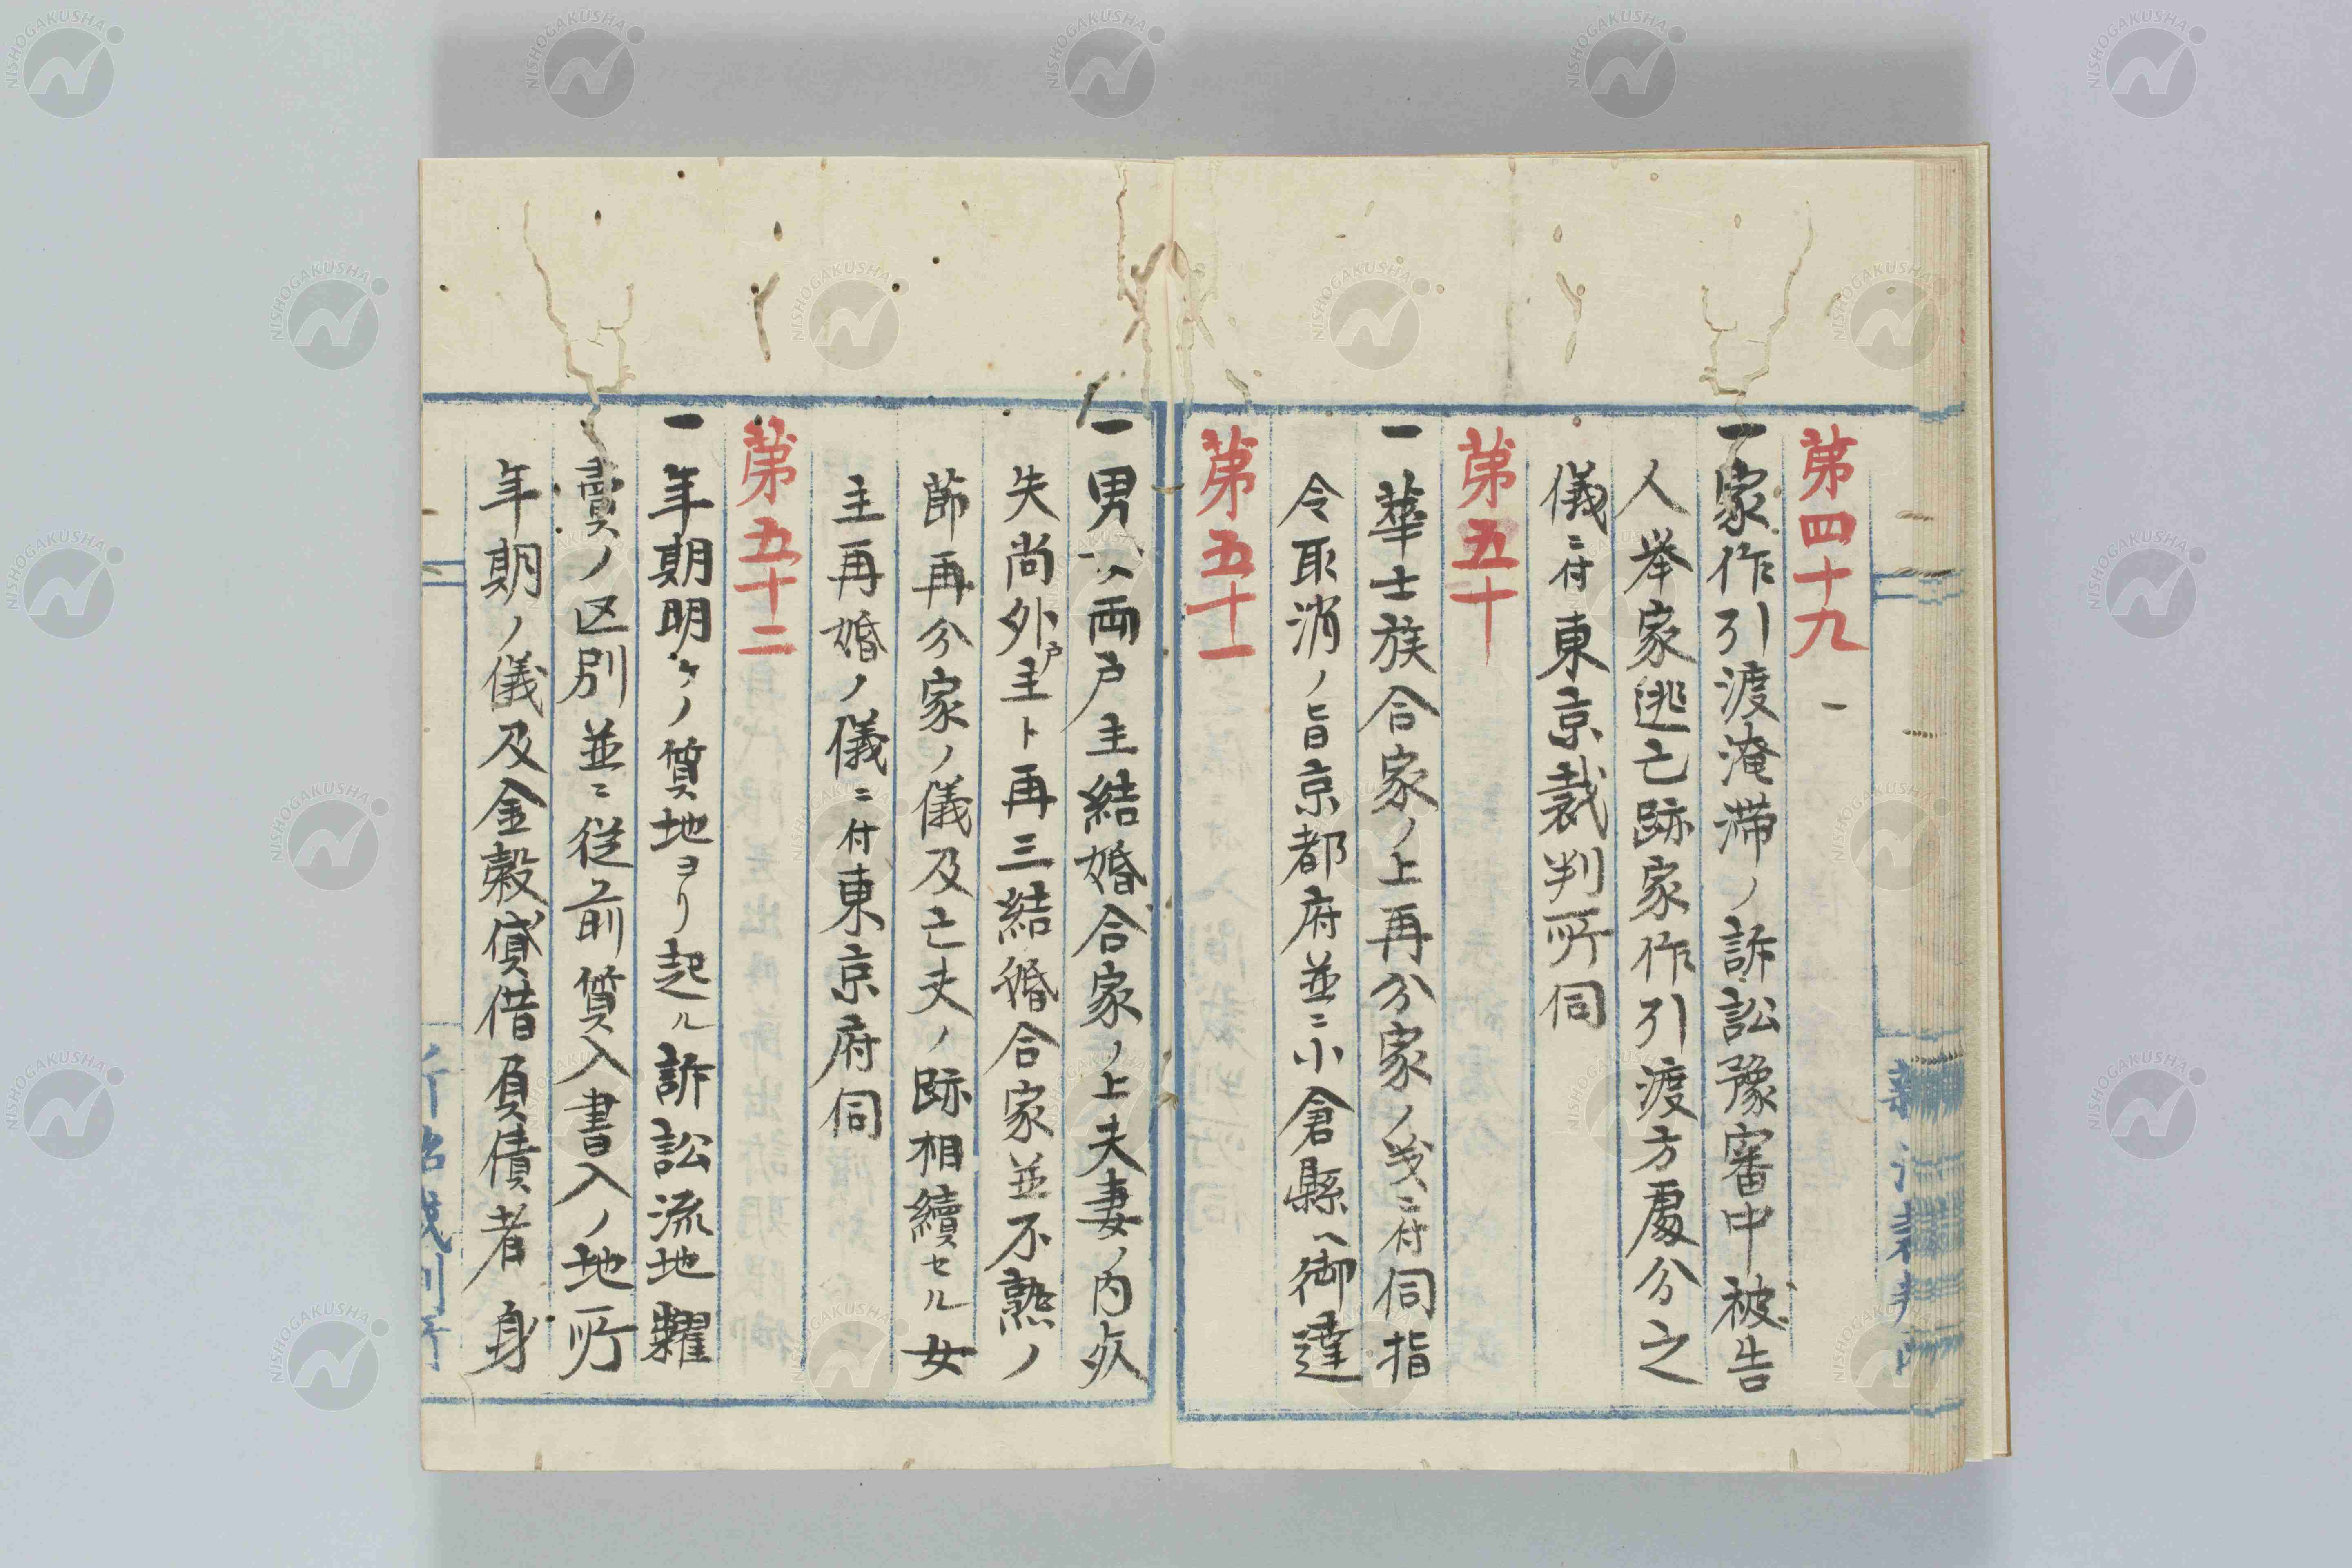 第四十九
一家作引渡淹滞ノ訴訟豫審中被告
人挙家逃亡跡家作引渡方處分之
儀ニ付東京裁判所伺
第五十
一華士族合家ノ上再分家ノ義ニ付伺指
令取消ノ旨京都府並ニ小倉縣へ御達
第五十一
一男女両戸主結婚合家ノ上夫妻ノ内
失尚外戸主ト再三結婚合家並不熟ノ
節再分家ノ儀及亡夫ノ跡相續セル女
主再婚ノ儀ニ付東京府伺
第五十二
一年期明ケノ質地ヨリ起ル訴訟流地糶
賣ノ区別並ニ従前質入書入ノ地所
年期ノ儀及金穀貸借負債者身
NISHOGAKUSHA